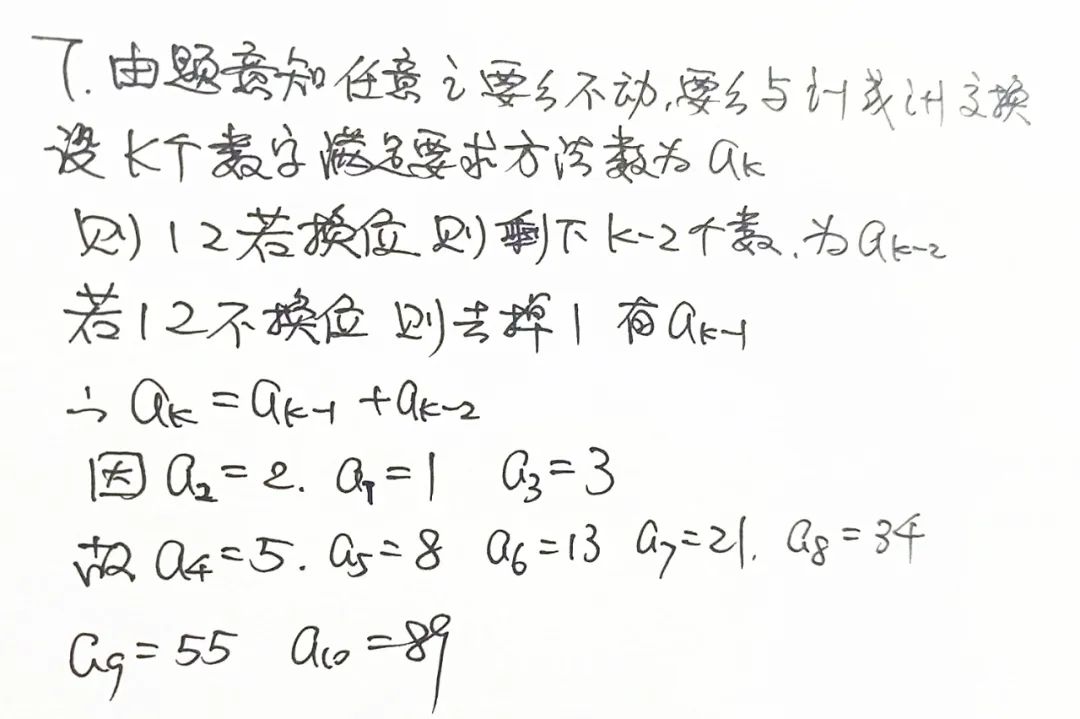 7. 由题意知任意i要么不动,要么与i-1或i+1交换
设k个数字满足要求方法数为a_k
则12若换位则剩下k-2个数.为a_{k-2}
若12不换位则去掉1有a_{k-1}
∴ a_k = a_{k-1} + a_{k-2}
因a_2=2. a_1=1 a_3=3
故a_4=5. a_5=8 a_6=13 a_7=21. a_8=34
a_9=55 a_{10}=89